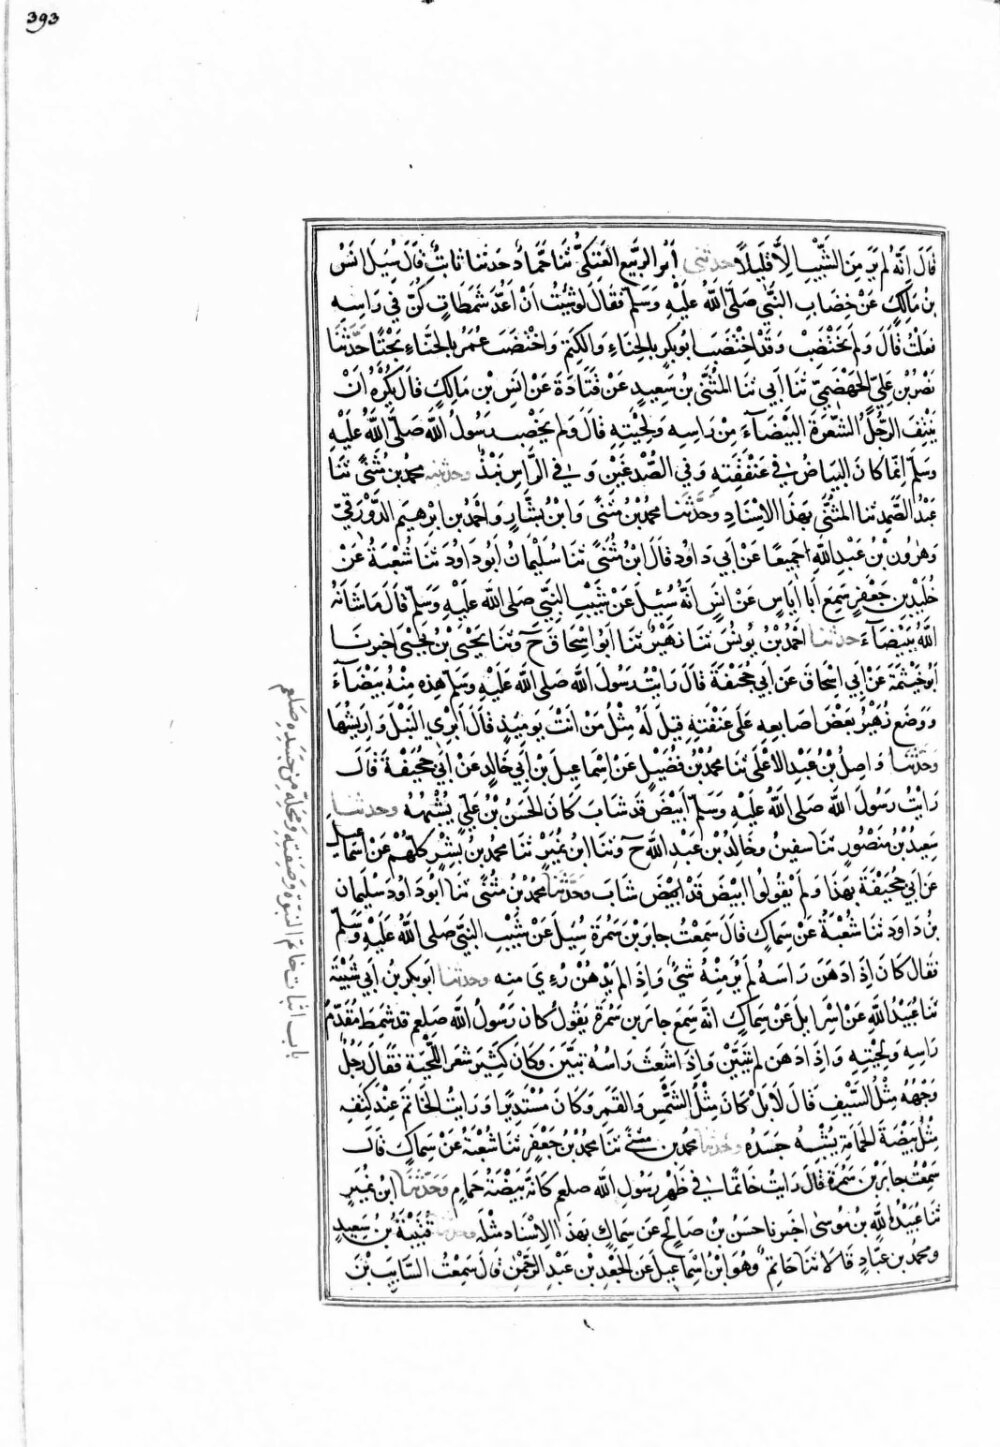 393
قَالَ اِنَّهُ لَمْ يَرَ مِنَ الشَّيْبِ اِلَّا قَلِيلًا حدثنى اَبُو الرَّبِيعِ العَتَكِىُّ ثَنَا حَمَّادٌ حَدَثَنَا ثَابِتٌ قَالَ سُئِلَ اَنَسُ
بْنُ مَالِكٍ عَنْ خِضَابِ النَّبِيِّ صَلَّى اللَّهُ عَلَيْهِ وَسَلَّمَ فَقَالَ لَوْ شِئْتُ اَنْ اَعُدَّ شَمَطَاتٍ كُنَّ فِي رَاسِهِ
فَعَلْتُ قَالَ وَلَمْ يَخْتَضِبْ وَقَدْ اخْتَضَبَ اَبُو بَكْرٍ بِالْحِنَّاءِ وَالكَتَمِ وَاخْتَضَبَ عُمَرُ بِالْحِنَّاءِ بَحْتًا حَدَّثَنَا
نَصْرُ بْنُ عَلِيٍّ الجَهْضَمِيُّ ثَنَا اَبِي ثَنَا المُثَنَّى بْنُ سَعِيدٍ عَنْ قَتَادَةَ عَنْ اَنَسِ بْنِ مَالِكٍ قَالَ يُكْرَهُ اَنْ
يَنْتِفَ الرَّجُلُ الشَّعْرَةَ البَيْضَآءَ مِنْ رَاسِهِ وَلِحْيَتِهِ قَالَ وَلَمْ يَخْضِبْ رَسُولُ اللَّهِ صَلَّى اللَّهُ عَلَيْهِ
وَسَلَّمَ اِنَّمَا كَانَ البَيَاضُ فِي عَنْفَقَتِهِ وَفِي الصُّدْغَيْنِ وَفِي الرَّاسِ نَبْذٌ وحدثنيه محمد بن مُثَنًّى ثَنَا
عَبْدُ الصَّمَدِ ثنا المُثَنَّى بِهَذَا الاِسْنَادِ وَحَدَّثَنَا محمد بْنُ مُثَنًّى وَابْنُ بَشَّارٍ وَاحْمَدُ بن اِبْرهِيمَ الدَّوْرَقِيُّ
وَهٰرُونُ بْنُ عَبْدِ اللَّهِ جَمِيعًا عَنْ اَبِي دَاوُد قَالَ ابْنُ مُثَنًّى ثَنَا سُلَيْمَانُ اَبُو دَاوُدَ ثَنَا شُعْبَةُ عَنْ
خُلَيْدِ بْنِ جَعْفَرٍ سَمِعَ اَبَا اِيَاسٍ عَنْ اَنَسٍ اَنَّهُ سُئِلَ عَنْ شَيْبِ النَّبِيِّ صَلَى اللَّه عَلَيْهِ وَسَلَّمَ قَالَ مَا شَانَهُ
اللَّهُ بِبَيْضَآءَ حدثنا اَحْمَدُ بْنُ يُونُسَ ثَنَا زُهَيْرٌ ثَنَا اَبُو اِسْحَاقَ حَ وَثَنَا يَحْيَى بْنُ يَحْيَى اخبرنا
اَبُو خَيْثَمَةَ عَنْ اَبِي اِسْحَاقَ عَنْ اَبِي جُحَيْفَةَ قَالَ رَايْتُ رَسُولَ اللَّه صَلَى اللَّه عَلَيْهِ وَسَلَّمَ هٰذِهِ مِنْهُ بَيْضَآءَ
وَوَضَعَ زُهَيْرٌ بَعْضَ اصَابِعِهِ عَلَى عَنْفَقَتِهِ قِيلَ لَهُ مِثْلُ مَنْ اَنْتَ يَوْمَئِذٍ قَالَ اَبْرِي النَّبْلَ وَارِيشُهَا
وَحَدَّثَنَا وَاصِلُ بْنُ عَبْدِ الاَعْلَى ثنا محمد بْنُ فُضَيْلٍ عَنْ اِسْمَاعِيلَ بْنِ اَبِي خَالِدٍ عَنْ اَبِي جُحَيْفَةَ قَالَ
رَايْتُ رَسُولَ اللَّه صَلَى اللَّهُ عَلَيْهِ وَسَلَّمَ اَبْيَضَ قَدْ شَابَ كَانَ الحَسَنُ بْنُ عَلِيٍّ يُشْبِهُهُ وحدثنا
سَعِيدُ بْنُ مَنْصُورٍ ثنا سفينُ وَخَالِدُ بْنُ عَبْدِ اللَّه حَ وَثَنَا ابنُ نُمَيْرٍ ثَنَا محمد بْنُ بِشْرٍ كُلُّهُمْ عَنْ اسماعيل
عَنْ اَبِي جُحَيْفَةَ بِهَذَا وَلَمْ يَقُولُوا اَبْيَضَ قَدْ شَابَ وَحَدَّثَنَا محمد بْنُ مُثَنًّى ثَنَا اَبُو دَاوُدَ سُلَيْمَانُ
بْنُ دَاوُدَ ثَنَا شُعْبَةُ عَنْ سِمَاكٍ قَالَ سَمِعْتُ جابِرَ بْنَ سَمُرَةَ سُئِلَ عَنْ شَيْبِ النَّبِيِّ صَلى اللَّهُ عَلَيْهِ وَسَلَّمَ
فَقَالَ كَانَ اِذَا دَهَنَ رَاسَهُ لَمْ يُرَ مِنْهُ شَىْءٌ وَاِذَا لَمْ يَدْهُنْ رُءِىَ مِنْهُ وحدثنا ابو بكر بن اَبِي شَيْبَةَ
ثنا عُبَيْدُ اللَّه عَنْ اِسْرَايِلَ عَنْ سِمَاكٍ اَنَّهُ سَمِعَ جابِرَ بن سَمُرَةَ يَقُولُ كَانَ رَسُولُ اللَّهِ صلعم قَدْ شَمِطَ مُقَدَّمُ
رَاسِهِ وَلِحْيَتِهِ وَاِذَا دَهَنَ لَمْ تَتَبَيَّنْ وَاِذَا شَعِثَ رَاسُهُ تَبَيَّنَ وَكَانَ كَثِيرَ شَعَرِ اللِّحْيَةِ فَقَالَ رَجُلٌ
وَجْهُهُ مِثْلُ السَّيْفِ قَالَ لَا بَلْ كَانَ مِثْلَ الشَّمْسِ وَالقَمَرِ وَكَانَ مُسْتَدِيرًا وَرَايْتُ الخَاتَمَ عِنْدَ كَتِفِهِ
مِثْلَ بَيْضَةِ الحَمَامَةِ يُشْبِهُ جَسَدَهُ وحدثنا محمد بن مثنى ثَنَا محمد بْنُ جَعْفَرٍ ثَنَا شُعْبَةُ عَنْ سِمَاكٍ قَالَ
سَمِعْتُ جابِرَ بْنَ سَمُرَةَ قَالَ رَايْتُ خَاتَمًا فِي ظَهْرِ رَسُولِ اللَّه صلعم كَانَّهُ بَيْضَةُ حَمَامٍ وَحَدَّثَنَا ابن نُمَيْرٍ
ثَنَا عُبَيْدُ اللَّهِ بْنُ مُوسَى اَخبرنا حسَنُ بن صَالِحٍ عَن سِمَاكٍ بِهَذَا الاِسْنَادِ مثْلَهُ وحدثنا قُتَيْبَةُ بْنُ سَعِيدٍ
وَمحمد بن عَبَّادٍ قَالَا ثَنَا حَاتِمٌ وَهُوَ ابْنُ اِسْمَاعِيلَ عَنِ الجَعْدِ بْنِ عَبْدِ الرَّحْمٰنِ قَالَ سَمِعْتُ السَّايِبَ بْنَ
باب اثبات خاتم النبوة وصفته ومحله من جسده صلعم